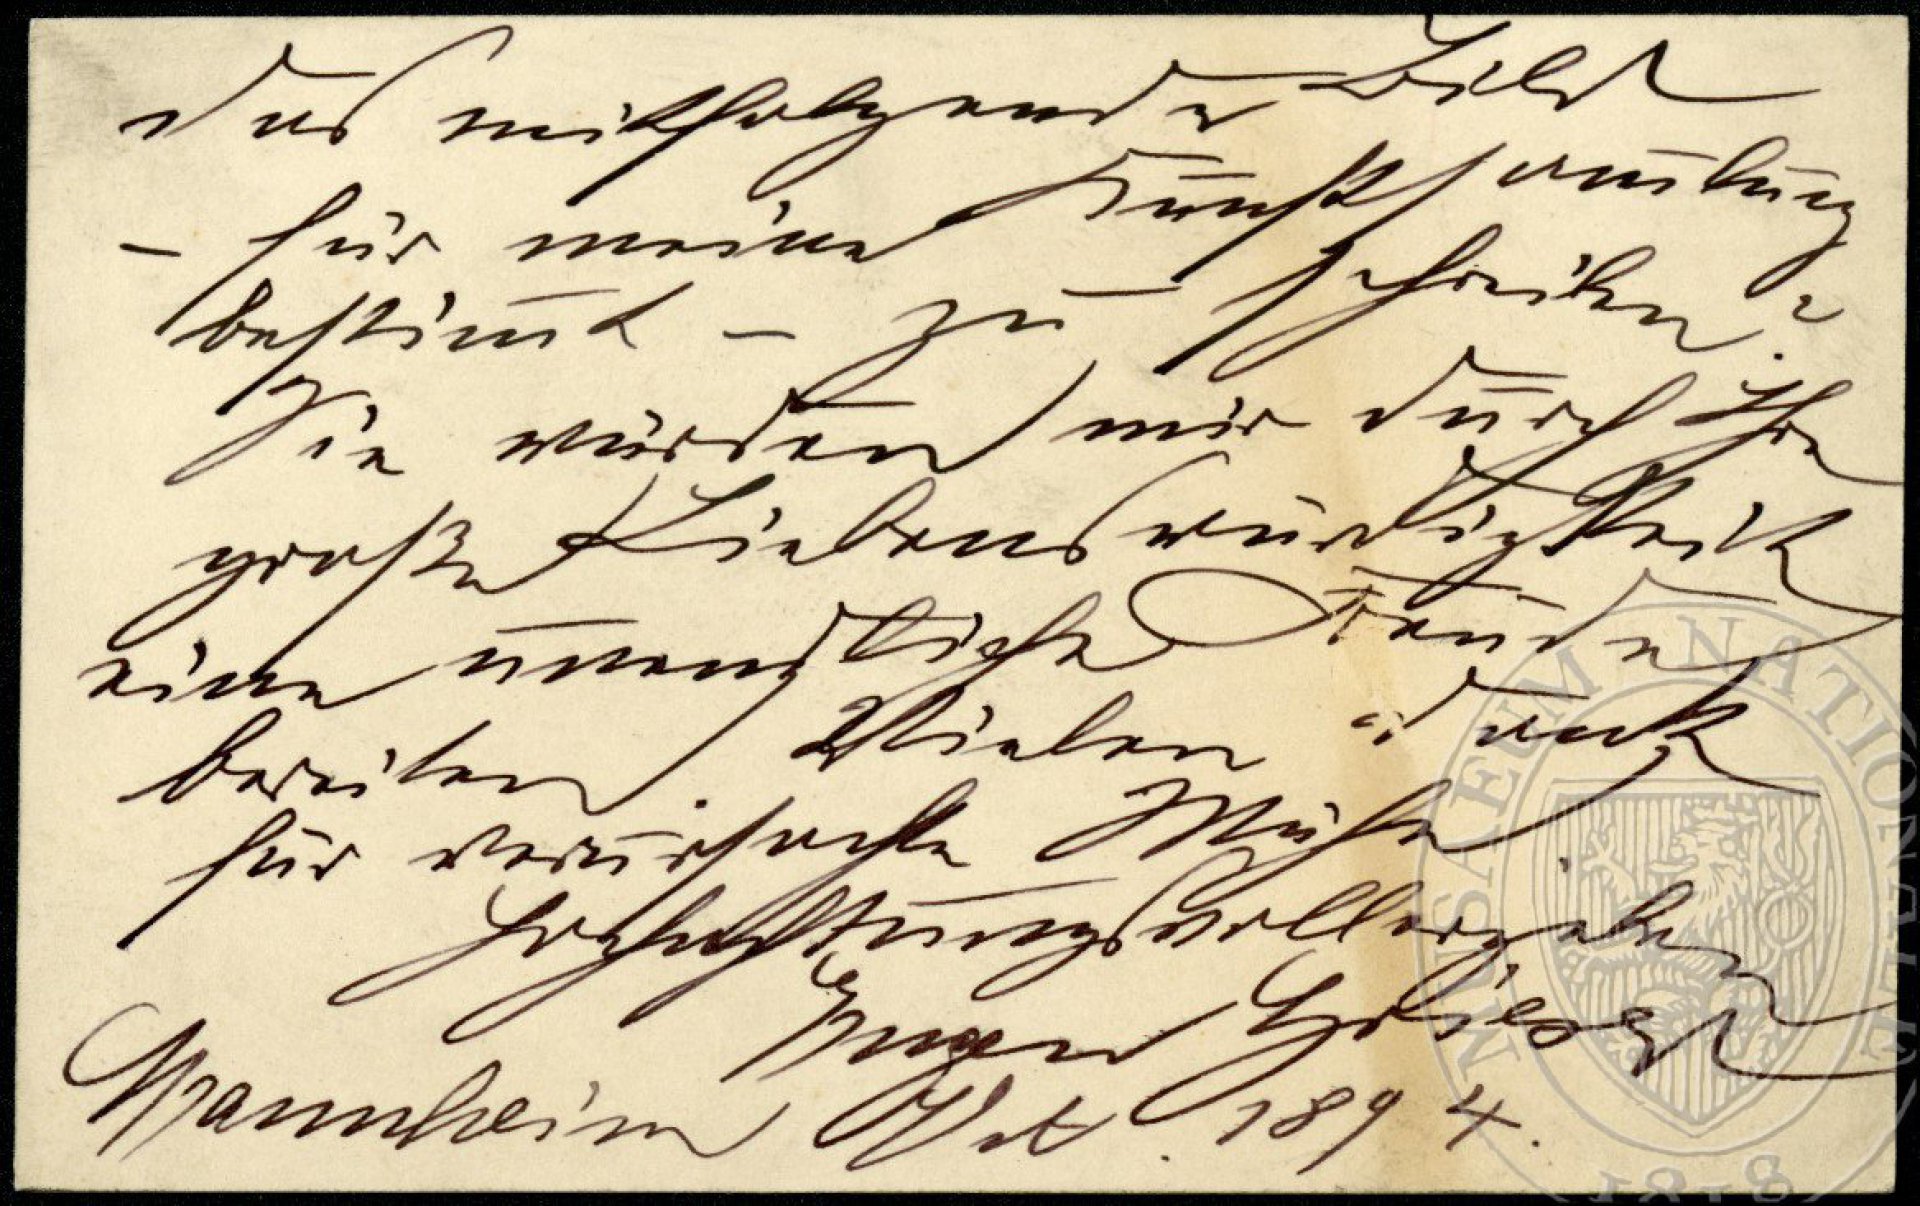 das mitfolgende Bild
– für meine Kunstsamlung
bestimt – zu schreiben?
Sie würden mir durch Ihre
große Liebenswürdigkeit
eine unendliche Freude
bereiten. Vielen Dank
für verursachte Mühe.
Hochachtungsvoll ergeben
Eugen
Mannheim Oct. 1894.
MUSAEUM NATIONALE
1818